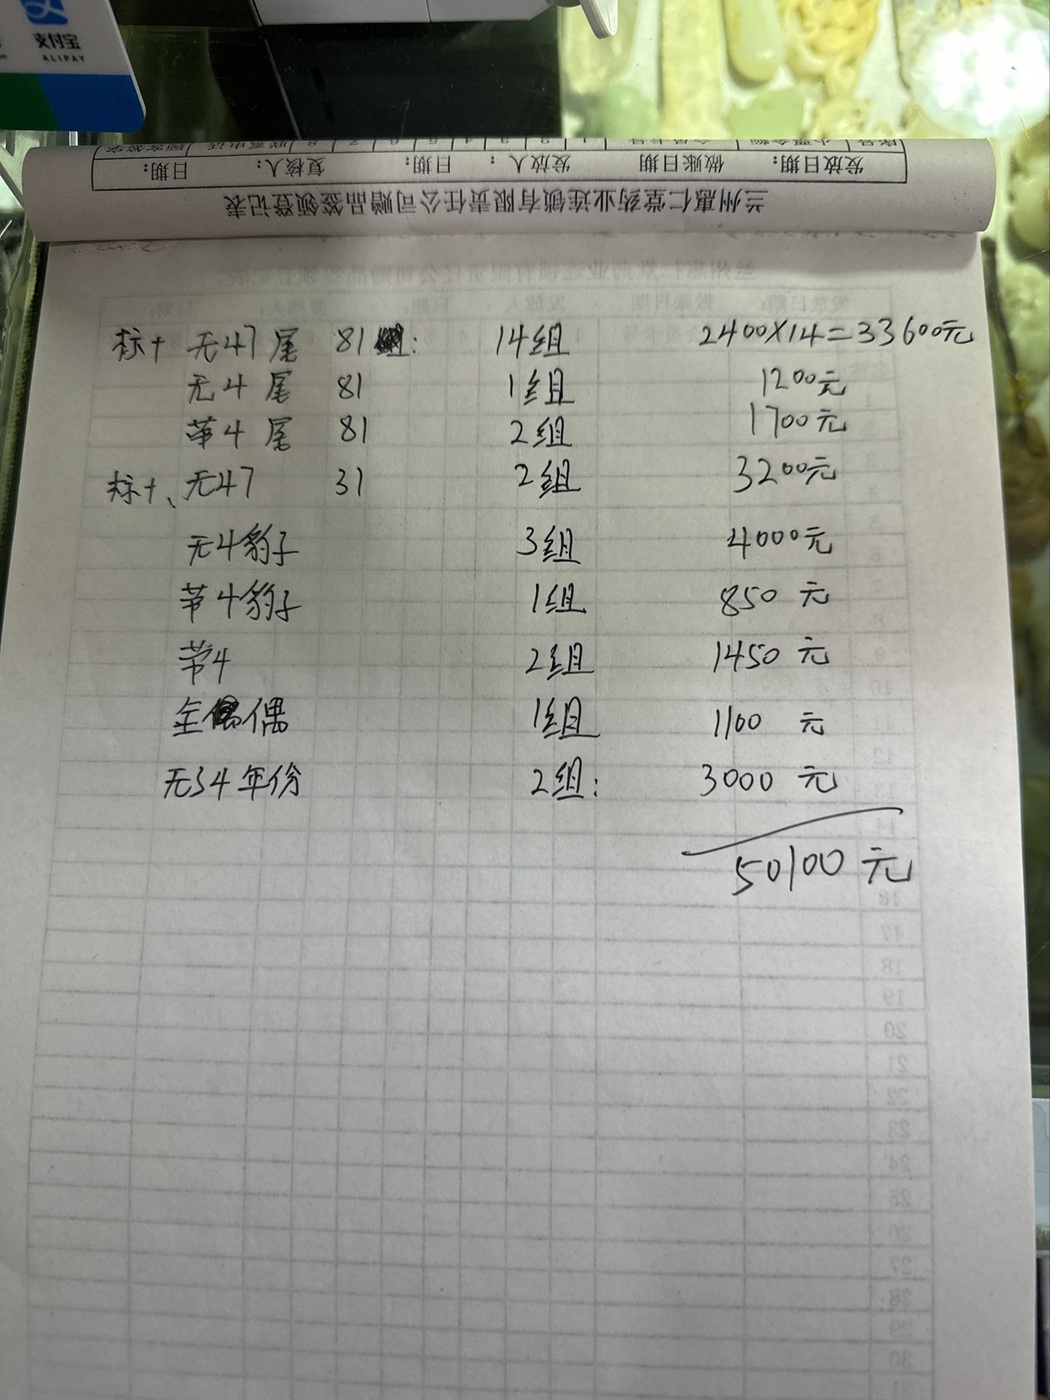 支付宝
ALIPAY
发放日期： 做账日期 发放人： 日期： 复核人： 日期：
兰州惠仁堂药业连锁有限责任公司赠品签领登记表
标十 无47尾 81 ： 14组 2400X14=33600元
无4尾 81 1组 1200元
带4尾 81 2组 1700元
标十、无47 31 2组 3200元
无4豹子 3组 4000元
带4豹子 1组 850元
带4 2组 1450元
全偶 1组 1100元
无34年份 2组： 3000元
50100元